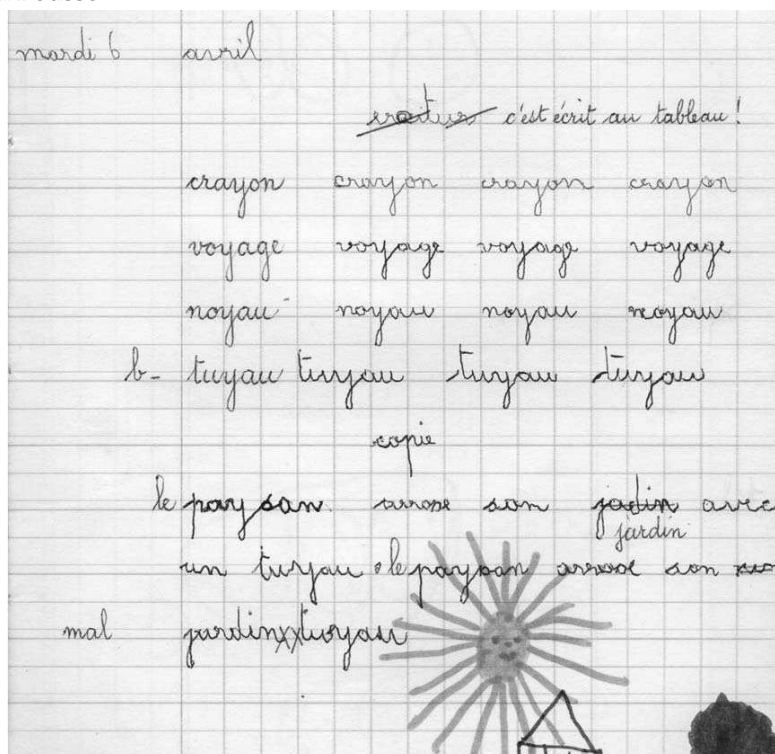 mardi 6 avril
c'est écrit au tableau !
crayon crayon crayon crayon
voyage voyage voyage voyage
noyau noyau noyau noyau
b- tuyau tuyau tuyau tuyau
copie
le paysan arrose son jadin avec
jardin
un tuyau . le paysan arrose son
mal jardin xx tuyau